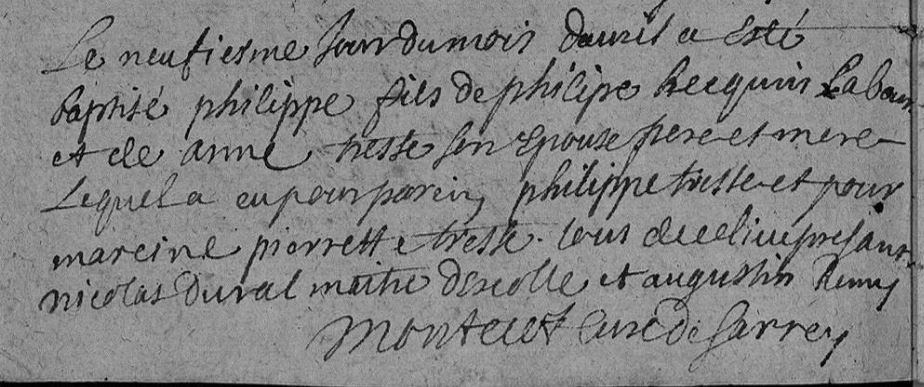 Le neufiesme Jour du mois davril a esté
baptisé philippe fils de philipe hecquin Labour
et de anne tresse son Epouse pere et mere
Lequel a eu pour parein philippe tresse et pour
mareine pierrette tresse. tous de ce lieu presant
nicolas Duval maitre descolle et augustin Remy
Curé de Sarrey